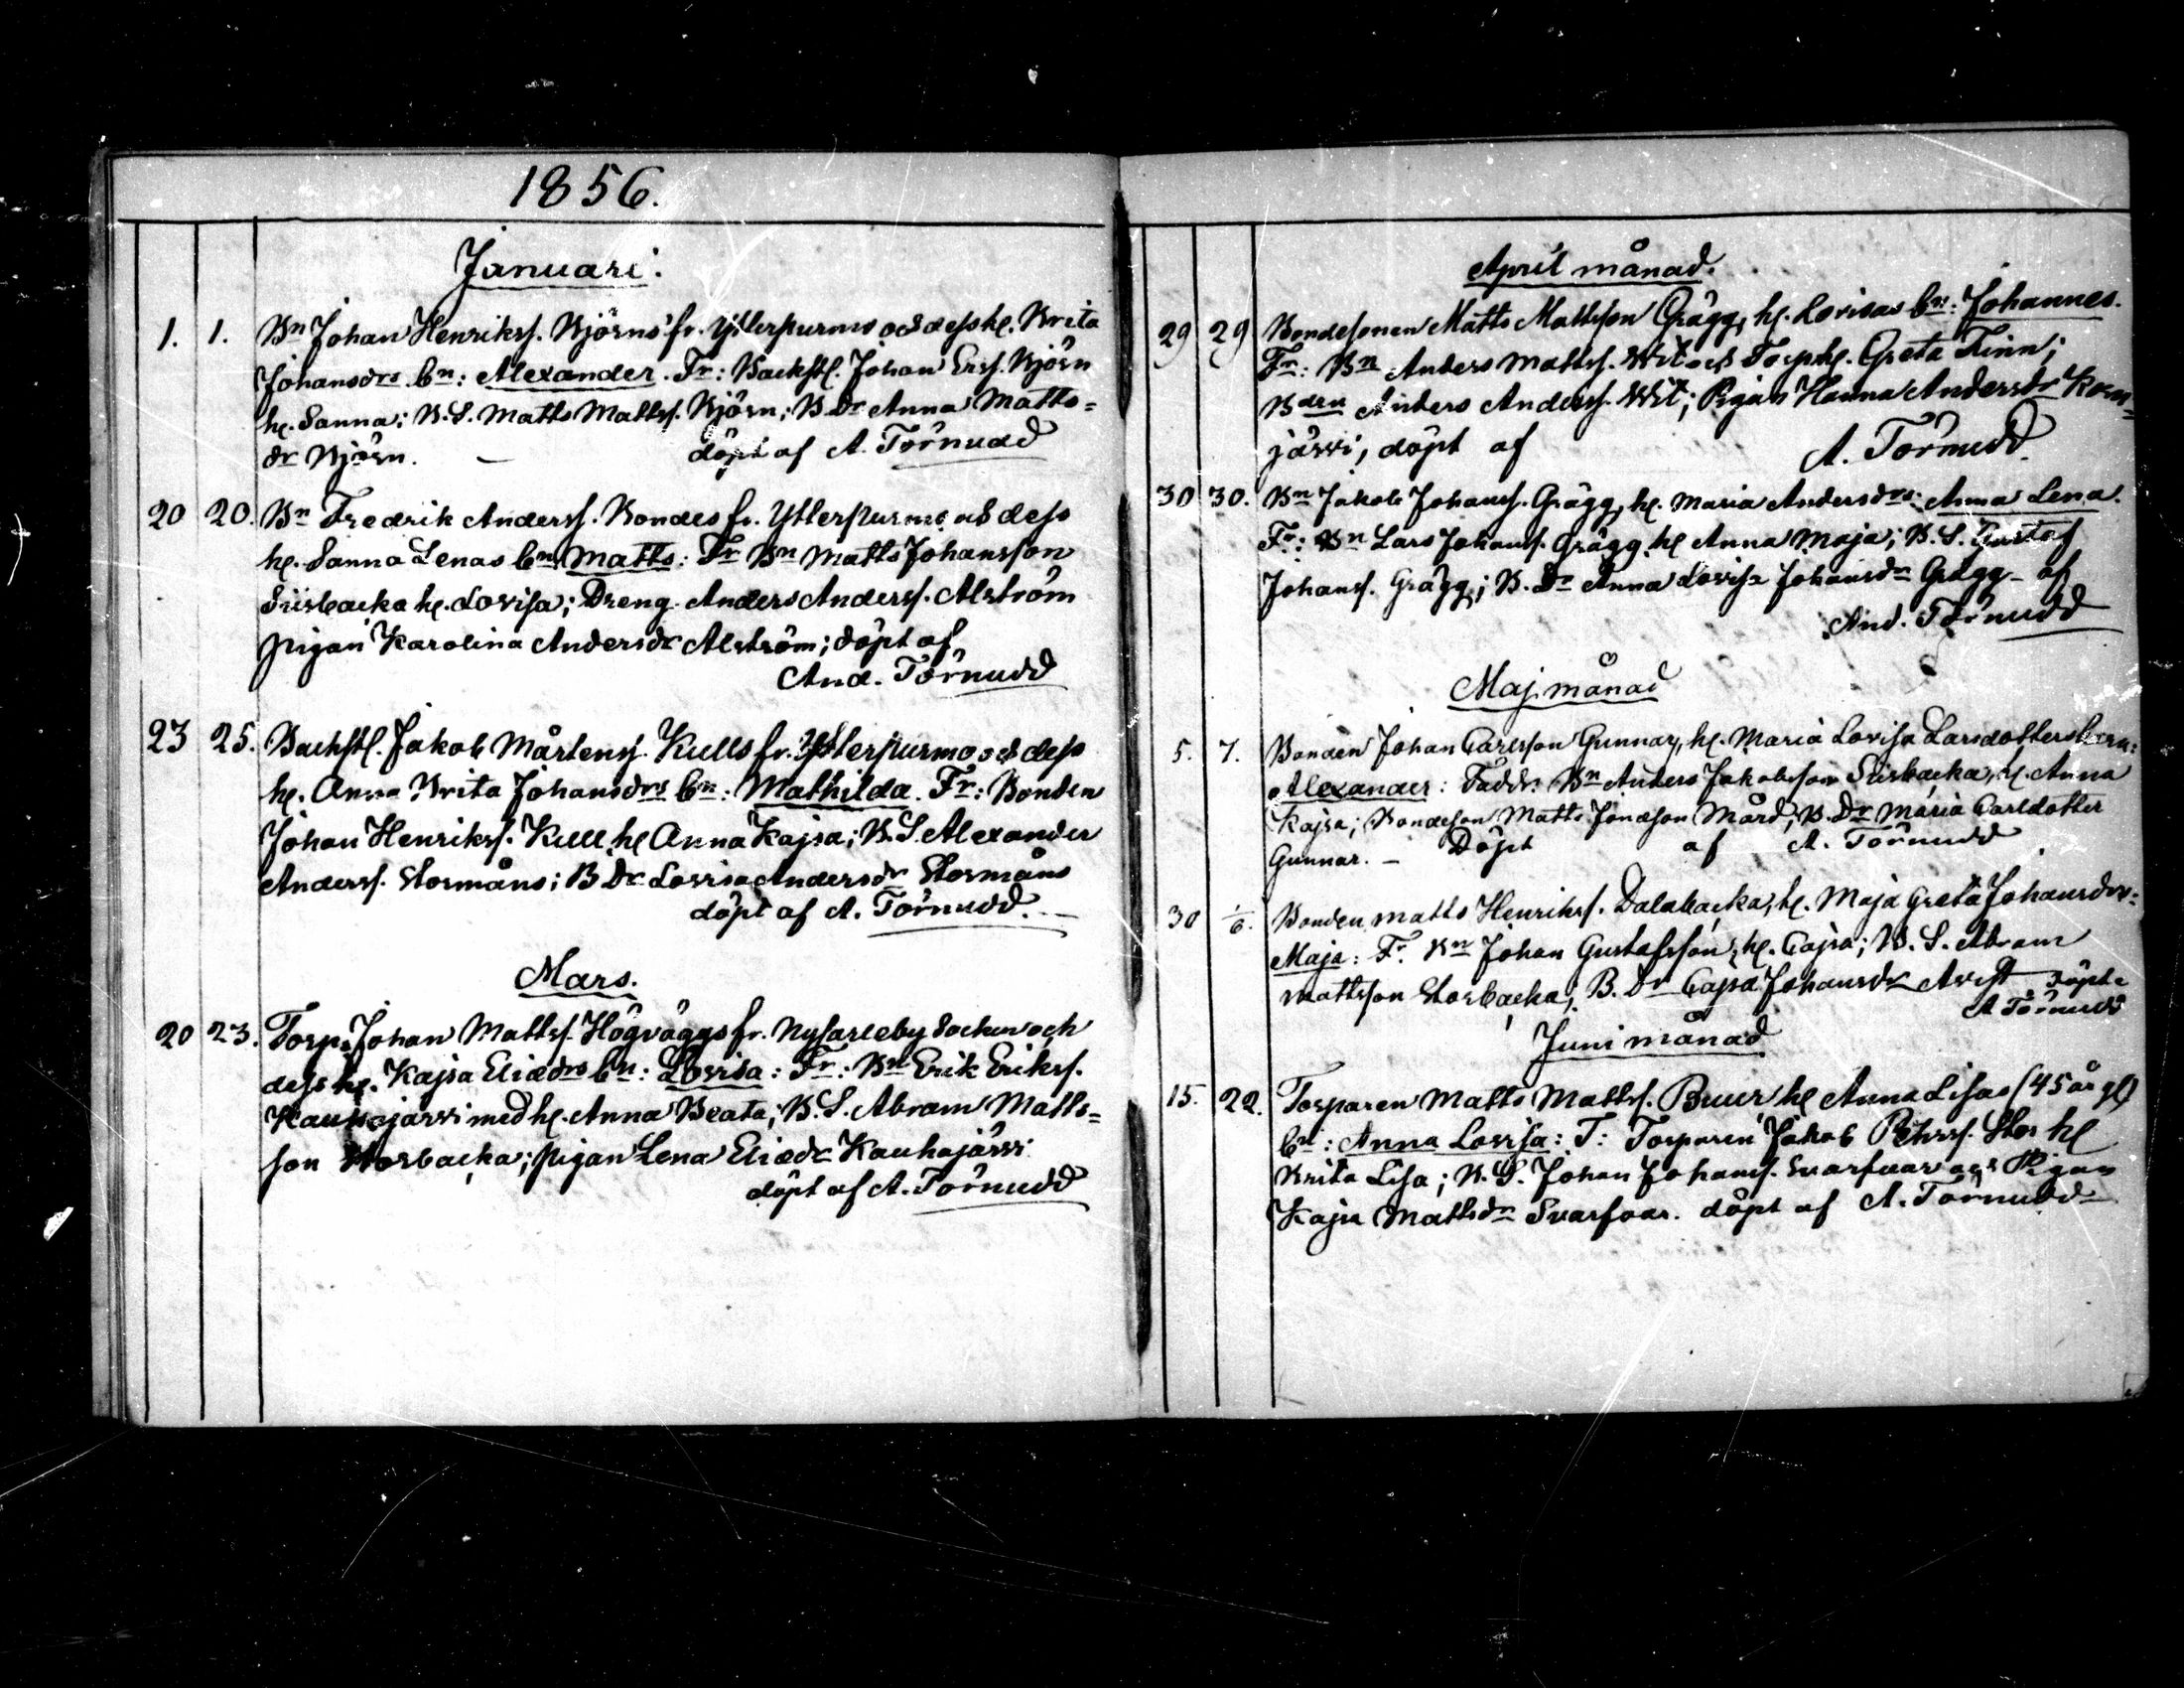 1856.
Januari.
1. 1. Bn Johan Henrikss. Björns fr. Ytterpurmo och dess h. Brita
Johansdrs bn: Alexander. Fr: Backst. Johan Erss. Björn
h. Sanna; B.S. Matts Mattss. Björn; B.Dr Anna Matts=
dr Björn. — döpt af A. Törnudd
20 20. Bn Fredrik Anderss. Bondes fr. Ytterpurmo och dess
h. Sanna Lenas bn Matts: Fr Bn Matts Johansson
Sisbacka h. Lovisa; Dreng Anders Anderss. Alström
pigan Karolina Andersdr Alström; döpt af
And. Törnudd
23 25. Backst. Jakob Mårtenss. Kulls fr. Ytterpurmo och dess
h. Anna Brita Johansdrs bn: Mathilda. Fr: Bonden
Johan Henrikss. Kull, h Anna Kajsa; B.S. Alexander
Anderss. Stormåns; B Dr Lovisa Andersdr Stormåns
döpt af A. Törnudd. —
Mars.
20 23. Torp. Johan Mattss. Högväggs fr. Nykarleby Socken och
dess h. Kajsa Eliædrs bn: Lovisa: Fr: Bn Erik Erikss.
Kauhajärvi med h. Anna Beata; B.S. Abram Matts=
son Storbacka; pigan Lena Eliædr Kauhajärvi
döpt af A. Törnudd
April månad.
29 29 Bondesonen Matts Mattsson Grägg, h. Lovisas bn: Johannes.
Fr: Bn Anders Mattss. Wit och Torph. Greta Finn;
Bden Anders Anderss. Wit; Pigan Hanna Andersdr
järvi, döpt af A. Törnudd.
30 30. Bn Jakob Johanss. Grägg, h. Maria Andersdrs: Anna Lena.
Fr: Bn Lars Johanss. Grägg, h Anna Maja; B.S. Gustaf
Johanss. Grägg; B. Dr Anna Lovisa Johansdr Grägg — af
And. Törnudd
Maj månad
5. 7. Bonden Johan Carlsson Gunnar, h. Maria Lovisa Larsdotters barn:
Alexander: Faddr: Bn Anders Jakobsson Sisbacka, h. Anna
Kajsa; Bondeson Matts Jonæson Mård, B. Dr Maria Carlsdotter
Gunnar. — Döpt af A. Törnudd
30 1/6. Bonden Matts Henrikss. Dalabacka, h. Maja Greta Johansdrs=
Maja: Fr. Bn Johan Gustafsson, h. Cajsa; B. S. Abram
Mattsson Storbacka; B. Dr Cajsa Johansdr döpt
A Törnudd
Juni månad
15. 22. Torparen Matts Mattss. Bruur h Anna Lisas (45 år gl)
bn: Anna Lovisa: F: Torparen Jakob Pehrss. Stor h
Brita Lisa; B. S. Johan Johanss. Svarfvar och Pigan
Kajsa Mattsdr Svarfvar. döpt af A. Törnudd